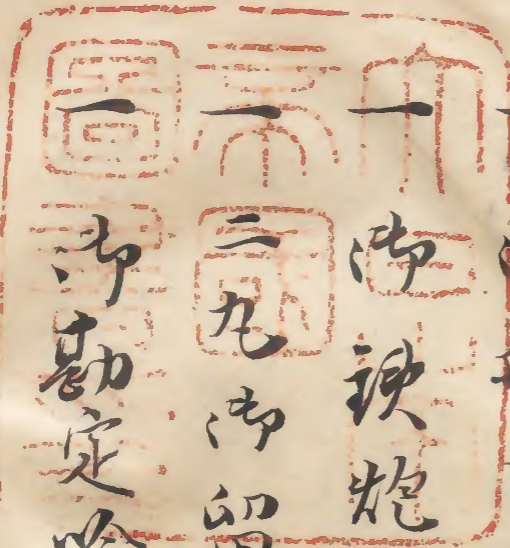 一 御鉄炮
一 二丸御留
一 御勘定吟